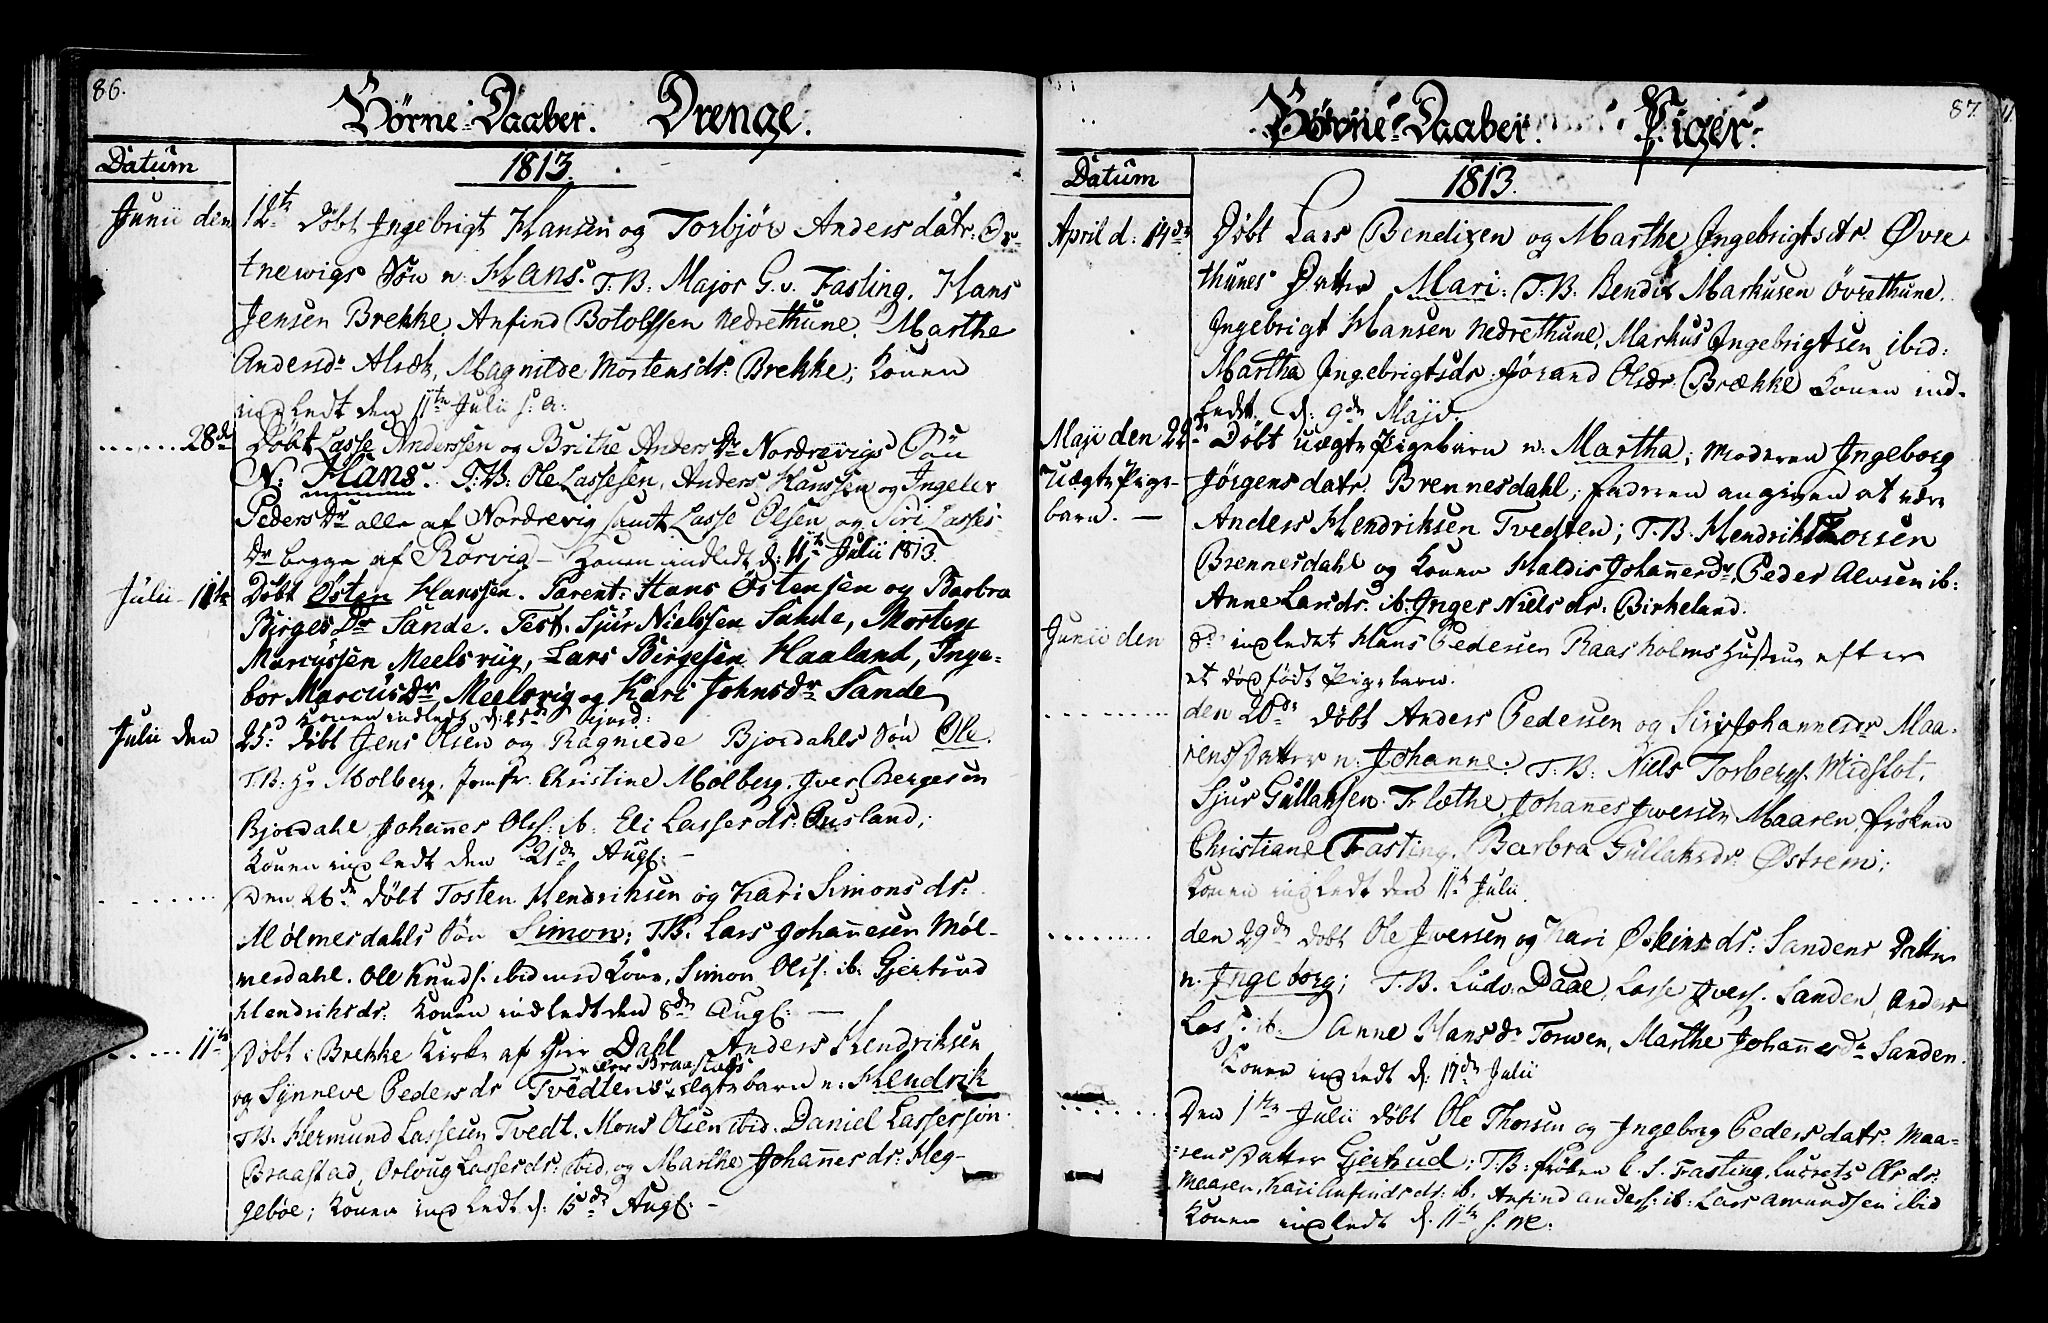 86.
Børne-Daaber. Drenge.
Datum
1813.
Junii den 12te Døbt Ingebrigt Hansen og Torbjør Andersdatr: Or-
tnewigs Søn n: Hans. T.B: Major G. v. Fasting. Hans
Jensen Brekke, Anfind Botolfsen Nedrethune. Marthe
Andersdr Alræk, Magnilde Mortensdr: Brekke; Konen
indledt den 11te Julii s. a:
28de Døbt Lasse Anderssen og Brithe AndersDr Nordrevigs Søn
N: Hans. T:B: Ole Lassesen, Anders Hanssen og Ingeler
PedersDr alle af Nordrevig samt Lasse Olsen og Siri Lasses-
Dr begge af Rørvig - Konen indledt d: 11te Julii 1813.
Julii 11te Døbt Østen Hanssen. Parent: Hans Østensen og Barbra
BirgesDr Sande. Test. Sjur Nielssen Sande, Morten
Marcussen Meelsvig, Lars Birgesen Haaland, Inge-
bor MarcusDr Meelsvig og Kari JohnsDr Sande
Konen indledt d: 25de
Julii den 25d døbt Jens Olsen og Ragnilde Bjordahls Søn Ole.
T.B: Hr Molberg. Jomfr. Christine Molberg. Iver Bergesen
Bjordahl, Johannes Olss: ib: Eli Lassesdr: Ousland;
Konen indledt den 21de Augs: -
Den 26de døbt Tosten Hendriksen og Kari Simonsdr:
Mølmesdahls Søn Simon; T.B. Lars Johannesen Møl-
mesdahl. Ole Knuds: ibid med Kone, Simon Olss: ib. Gjertrud
Hendriksdr: Konen indledt den 8de Augs: -
11te Døbt i Brekke Kirke af Herr Dahl Anders Hendriksen
eller Braastads
og Synneve Pedersdr Tvedtens uægte barn n: Hendrik
T.B. Hermund Lassesen Tvedt. Mons Olsen ibid. Daniel Lassessøn
Braastad, Orloug Lassesdr: ibid. og Marthe Johannesdr: Heg-
gebøe; Konen indledt d: 15de Augs: -
87.
Børne-Daaber. Piger.
Datum
1813.
April d: 19de Døbt Lars Bendixen og Marthe Ingebrigtsdtr. Øvre
thunes Datter Mari: T.B. Bendix Markusen Øvrethune.
Ingebrigt Hansen Nedrethune, Markus Ingebrigtsen ibid:
Martha Ingebrigtsdr: Jørand Olsdr: Brække Konen ind-
ledt d: 9de Maji.
Maji den 22de Døbt uægte Pigebarn n: Martha; Moderen Ingeborg
Uægte Pige-
barn. -
Jørgensdatr. Brennesdahl, faderen angiven at være
Anders Hendriksen Tvedten; T.B. Hendrik Thorsen
Brennesdahl og Konen Haldis JohannesDr Peder Alvsen ib:
Anne Larsdr: ib: Inger Nielsdr: Birkeland.
Junii den 8de indledet Hans Pedersen Raasholms Hustrue efter
et dødfødt Pigebarn.
den 20de døbt Anders Pedersen og Siri Johannesdr Maa-
rens Datter n: Johanne: T:B: Niels Torbergs: Midslot.
Sjur Gullaksen Trlæthe, Johannes Iversen Maaren, frøken
Christiane Fasting. Barbra Gullaksdr: Østrem;
Konen indledt den 11te Julii
den 29de døbt Ole Iversen og Kari Østensdr: Sandens Datter
n. Ingeborg; T.B. Ludv: Daae, Lasse Ivers. Sanden, Anders
Lass: ib. Anne Hansdr Torwen, Marthe Johannesdr Sanden.
Konen indledt d: 17de Julii
Den 1te Julii døbt Ole Thorsen og Ingeborg Pedersdatr: Maa-
rens Datter Gjertrud; T.B: frøken C. S. Fasting, Lucrets Olsdr:
Maaren, Kari Anfindsdr: ib. Anfind Anders: ib: Lars Amundsen ibid
Konen indledt d: 11te s. M: